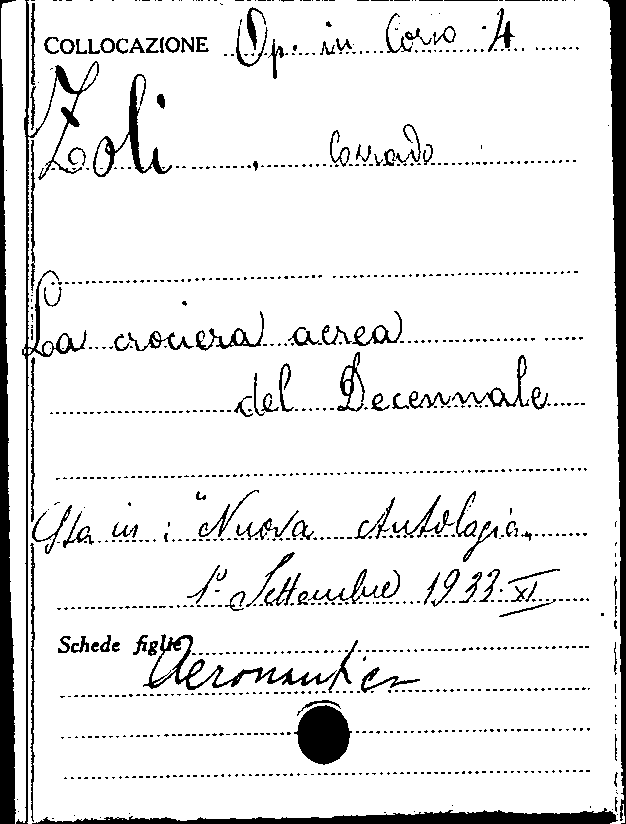 COLLOCAZIONE Op. in Corso 4
Zoli, Corrado
La crociera aerea
del Decennale
Sta in: "Nuova Antologia"
1° Settembre 1933. XI
Schede figlie
Aeronautica